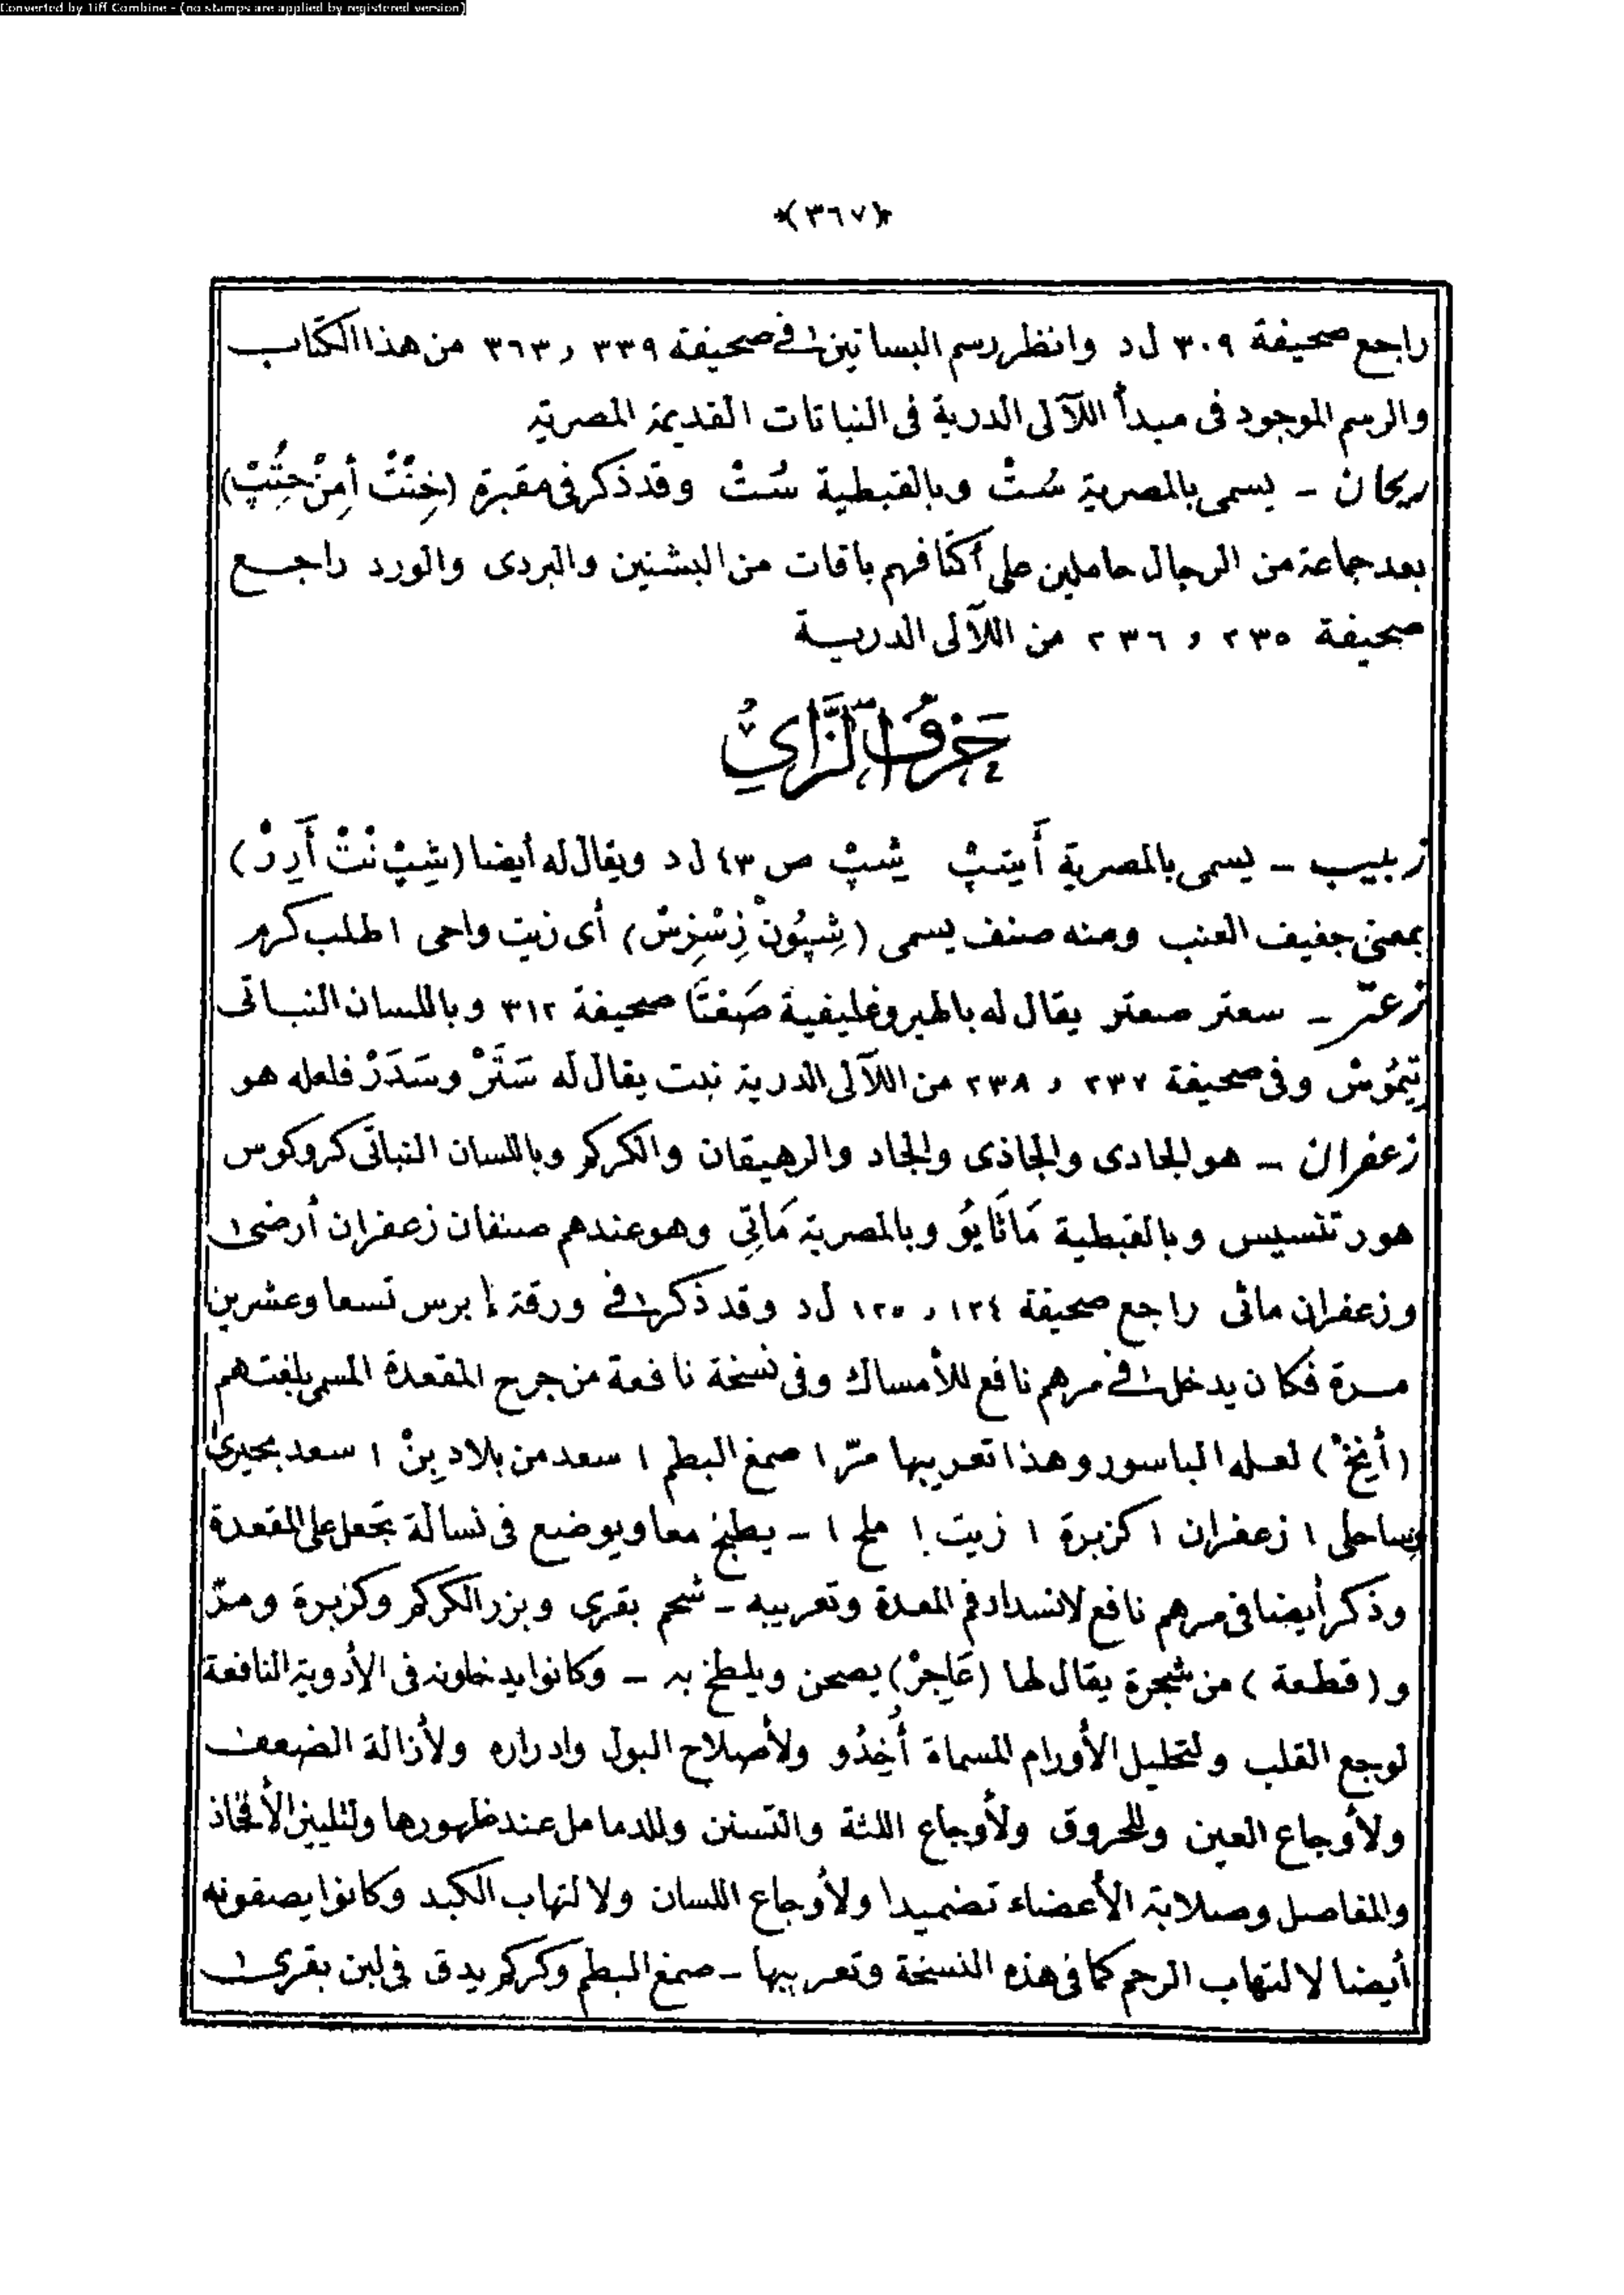 Converted by Tiff Combine - (no stamps are applied by registered version)
﴿٣٦٧﴾
راجع صحيفة ٣٠٩ ل د وانظر رسم البساتين في صحيفة ٣٣٩ و ٣٦٣ من هذا الكتاب
والرسم الموجود فى مبدأ اللآلى الدرية فى النباتات القديمة المصرية
ريحان - يسمى بالمصرية سُتْ وبالقبطية سُتْ وقد ذكر فى مقبرة (خِنْتْ أمِنْ حِتُبْ)
بعد جماعة من الرجال حاملين على أكتافهم باقات من البشنين والبردى والورد راجع
صحيفة ٢٣٥ و ٢٣٦ من اللآلى الدرية
حَرفُ الزَّاي
زبيب - يسمى بالمصرية أَيتپْ شپْ ص ٤٣ ل د ويقال له أيضا (شِپْ نْتْ آرِرْ)
بمعنى جفيف العنب ومنه صنف يسمى (شِپُونْ زِسْزِسْ) أى زبيب واحى اطلب كرم
زعتر - سعتر صعتر يقال له بالهيروغليفية صَغتَا صحيفة ٣١٢ وباللسان النباتى
تِيمُوسْ وفى صحيفة ٢٣٧ و ٢٣٨ من اللآلى الدرية نبت يقال له سَتَرْ وسَدَرْ فلعله هو
زعفران - هو الجادى والجاذى والجاد والرهيقان والكركم وباللسان النباتى كروكوس
هورتنسيس وبالقبطية مَاتَايُو وبالمصرية مَاتِى وهو عندهم صنفان زعفران أرضى
وزعفران مائى راجع صحيفة ١٢٤ و ١٢٥ ل د وقد ذكر في ورقة إبرس تسعا وعشرين
مرة فكان يدخل في مرهم نافع للأمساك وفى نسخة نافعة من جرح المقعدة المسمى بلغتهم
(أَنِخْ) لعله الباسور وهذا تعريبها مرّ ١ صمغ البطم ١ سعد من بلاد بِنْ ١ سعد بحيرى
وساحلى ١ زعفران ١ كزبرة ١ زيت ١ ملح ١ - يطبخ معا ويوضع فى نسالة تجعل على المقعدة
وذكر أيضا فى مرهم نافع لانسداد فم المعدة وتعريبه - شحم بقرى وبزر الكركم وكزبرة ومرّ
و (قطعة) من شجرة يقال لها (عَاجِرْ) يصحن ويلطخ به - وكانوا يدخلونه فى الأدوية النافعة
لوجع القلب ولتحليل الأورام المسماة أُخِدُو ولأصلاح البول وادراره ولأزالة الضعف
ولأوجاع العين وللحروق ولأوجاع اللثة والتسنن وللدمامل عند ظهورها ولتليين الأفخاذ
والمفاصل وصلابة الأعضاء تضميدا ولأوجاع اللسان ولالتهاب الكبد وكانوا يصفونه
أيضا لالتهاب الرحم كما فى هذه النسخة وتعريبها - صمغ البطم وكركم يدق فى لبن بقرى